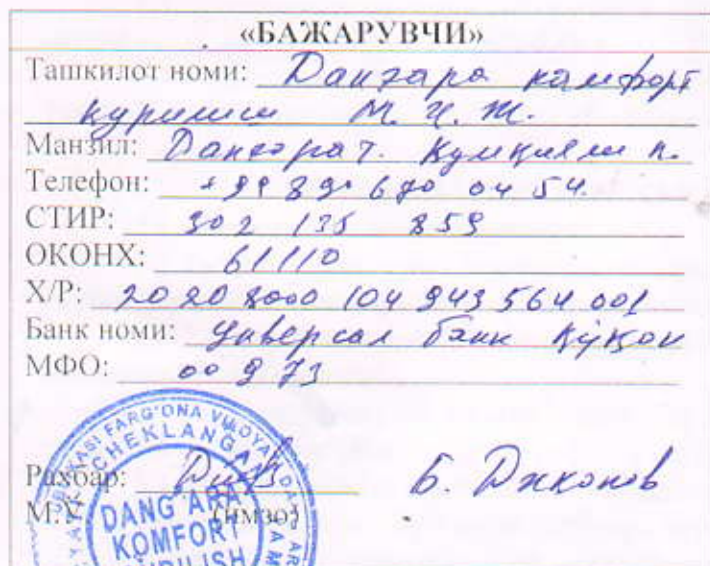 «БАЖАРУВЧИ»
Ташкилот номи: Дангара камфорт
қурилиш М.Ч.Ж.
Манзил: Дангара т.
Телефон: +99 890 670 04 54
СТИР: 302 135 859
ОКОНХ: 61110
Х/Р: 20 20 8000 104 943 564 001
Банк номи: Универсал банк Қўқон
МФО: 00973
Рахбар: Б.
М.У. (имзо)
FARG'ONA VILOYATI
CHEKLANGAN
DANG'ARA
KOMFORT
QURILISH